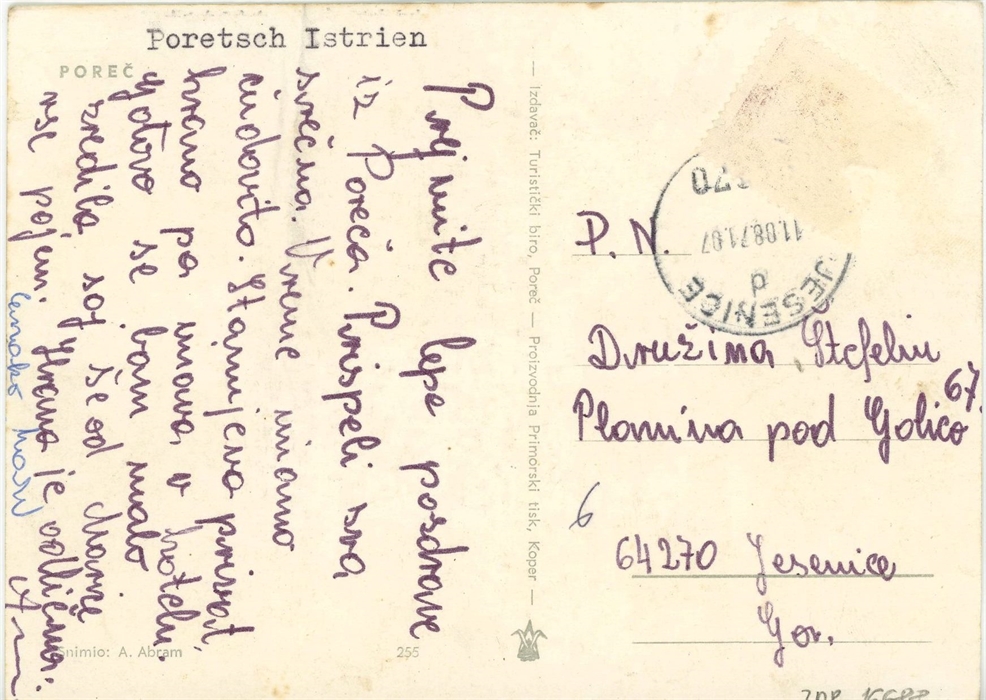 Poretsch Istrien
POREČ
Prejmite lepe pozdrave
iz Poreča. Prispeli sva
srečna. Vreme imamo
čudovito. Stanujeva privat
hrano pa imava v hotelu.
Gotovo se bom malo
zredila saj še od danše
vse pojem. Hrana je odlična.
enako
Snimio: A. Abram
255
— Izdavač: Turistički biro, Poreč — Proizvodnja Primorski tisk, Koper —
270
11.08.71.07
d
JESENICE
P. N.
Družina Štefelin
Planina pod Golico 67.
6
64270 Jesenice
Gor.